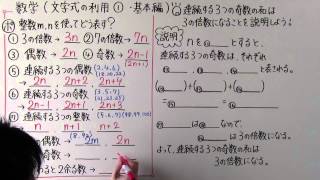 数学(文字式の利用①・基本編)
例 整数m,nを使ってどう表す?
① 3の倍数→ 3n ② 7の倍数→ 7n
③ 偶数→ 2n ④ 奇数→ 2n-1
(2n+1)
⑤ 連続する3つの偶数(2,4,6)
→ 2n, 2n+2, 2n+4
⑥ 連続する3つの奇数(3,5,7)
→ 2n-1, 2n+1, 2n+3
⑦ 連続する3つの整数
→ n, n+1, n+2
の偶数→ 2m, 2n
の奇数→
ると2余る数→
連続する3つの奇数の和は
3の倍数になることを説明しよう
説明
nを とすると、
連続する3つの奇数は、それぞれ
( )+( )+( )
=
=
は なので、
は3の倍数になる。
よって、連続する3つの奇数の和は
3の倍数になる。